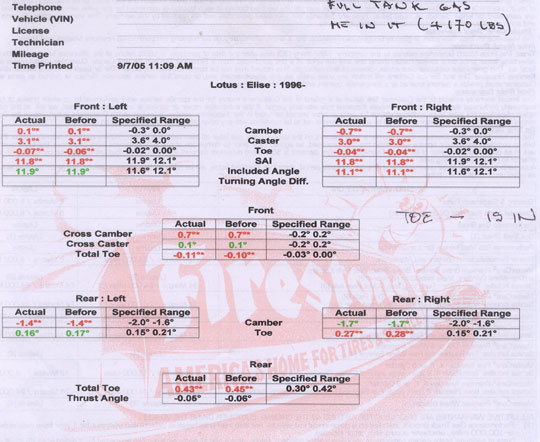 Telephone FULL TANK GAS
Vehicle (VIN) ME IN IT (+170 LBS)
License
Technician
Mileage
Time Printed 9/7/05 11:09 AM
Lotus : Elise : 1996-
Front : Left Front : Right
Actual Before Specified Range Actual Before Specified Range
0.1°* 0.1°* -0.3° 0.0° Camber -0.7°* -0.7°* -0.3° 0.0°
3.1°* 3.1°* 3.6° 4.0° Caster 3.0°* 3.0°* 3.6° 4.0°
-0.07°* -0.06°* -0.02° 0.00° Toe -0.04°* -0.04°* -0.02° 0.00°
11.8°* 11.8°* 11.9° 12.1° SAI 11.8°* 11.8°* 11.9° 12.1°
11.9° 11.9° 11.6° 12.1° Included Angle 11.1°* 11.1°* 11.6° 12.1°
Turning Angle Diff.
Front
TOE - IS IN
Actual Before Specified Range
Cross Camber 0.7°* 0.7°* -0.2° 0.2°
Cross Caster 0.1° 0.1° -0.2° 0.2°
Total Toe -0.11°* -0.10°* -0.03° 0.00°
Firestone
Rear : Left Rear : Right
Actual Before Specified Range Actual Before Specified Range
-1.4°* -1.4°* -2.0° -1.6° Camber -1.7° -1.7° -2.0° -1.6°
0.16° 0.17° 0.15° 0.21° Toe 0.27°* 0.28°* 0.15° 0.21°
AMERICA'S HOME FOR TIRES
Rear
Actual Before Specified Range
Total Toe 0.43°* 0.45°* 0.30° 0.42°
Thrust Angle -0.05° -0.06°